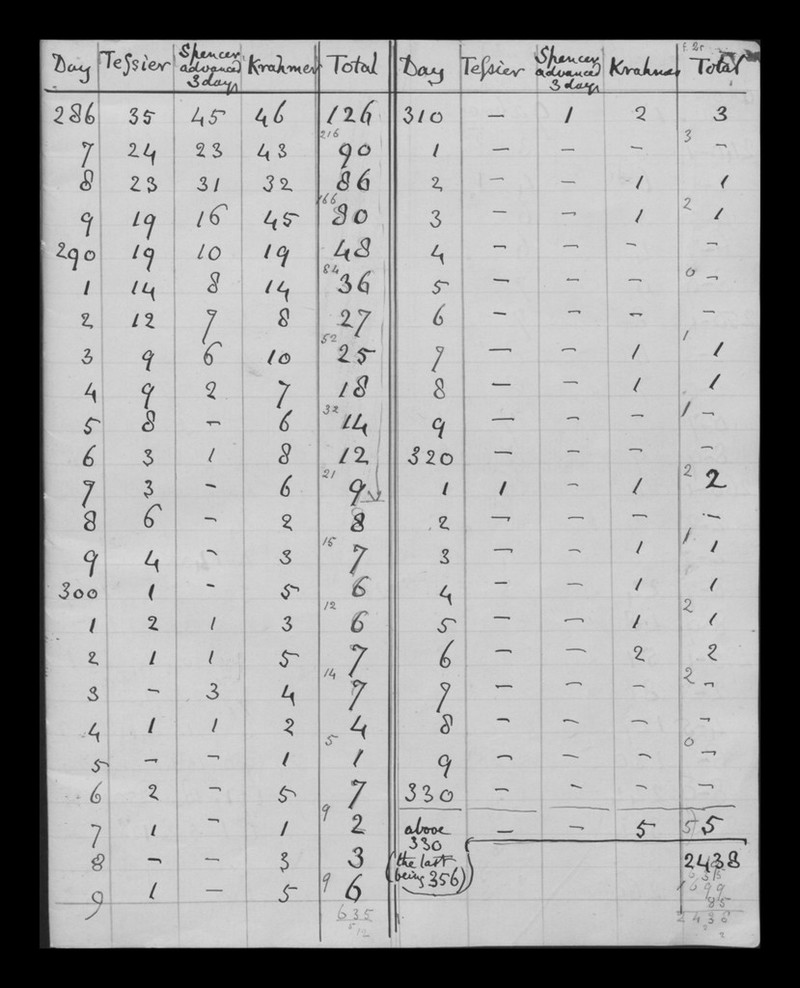 f. 2r
Day Teſsier Spencer advanced 3 days Krahmer Total Day Teſsier Spencer advanced 3 days Krahmer Total
286 35 45 46 126 310 — 1 2 3
216 3
7 24 23 43 90 1 — — — —
8 23 31 32 86 2 — — 1 1
166 2
9 19 16 45 80 3 — — 1 1
290 19 10 19 48 4 — — — —
84 0
1 14 8 14 36 5 — — — —
2 12 7 8 27 6 — — — —
52 1
3 9 6 10 25 7 — — 1 1
4 9 2 7 18 8 — — 1 1
32 1
5 8 — 6 14 9 — — — —
6 3 1 8 12 320 — — — —
21 2
7 3 — 6 9 1 1 — 1 2
8 6 — 2 8 2 — — — —
15 1
9 4 — 3 7 3 — — 1 1
300 1 — 5 6 4 — — 1 1
12 2
1 2 1 3 6 5 — — 1 1
2 1 1 5 7 6 — — 2 2
14 2
3 — 3 4 7 7 — — — —
4 1 1 2 4 8 — — — —
5 0
5 — — 1 1 9 — — — —
6 2 — 5 7 330 — — — —
9 5
7 1 — 1 2 above 330 — — 5 5
8 — — 3 3 (the last being 356) 2438
9
9 1 — 5 6
635
2436